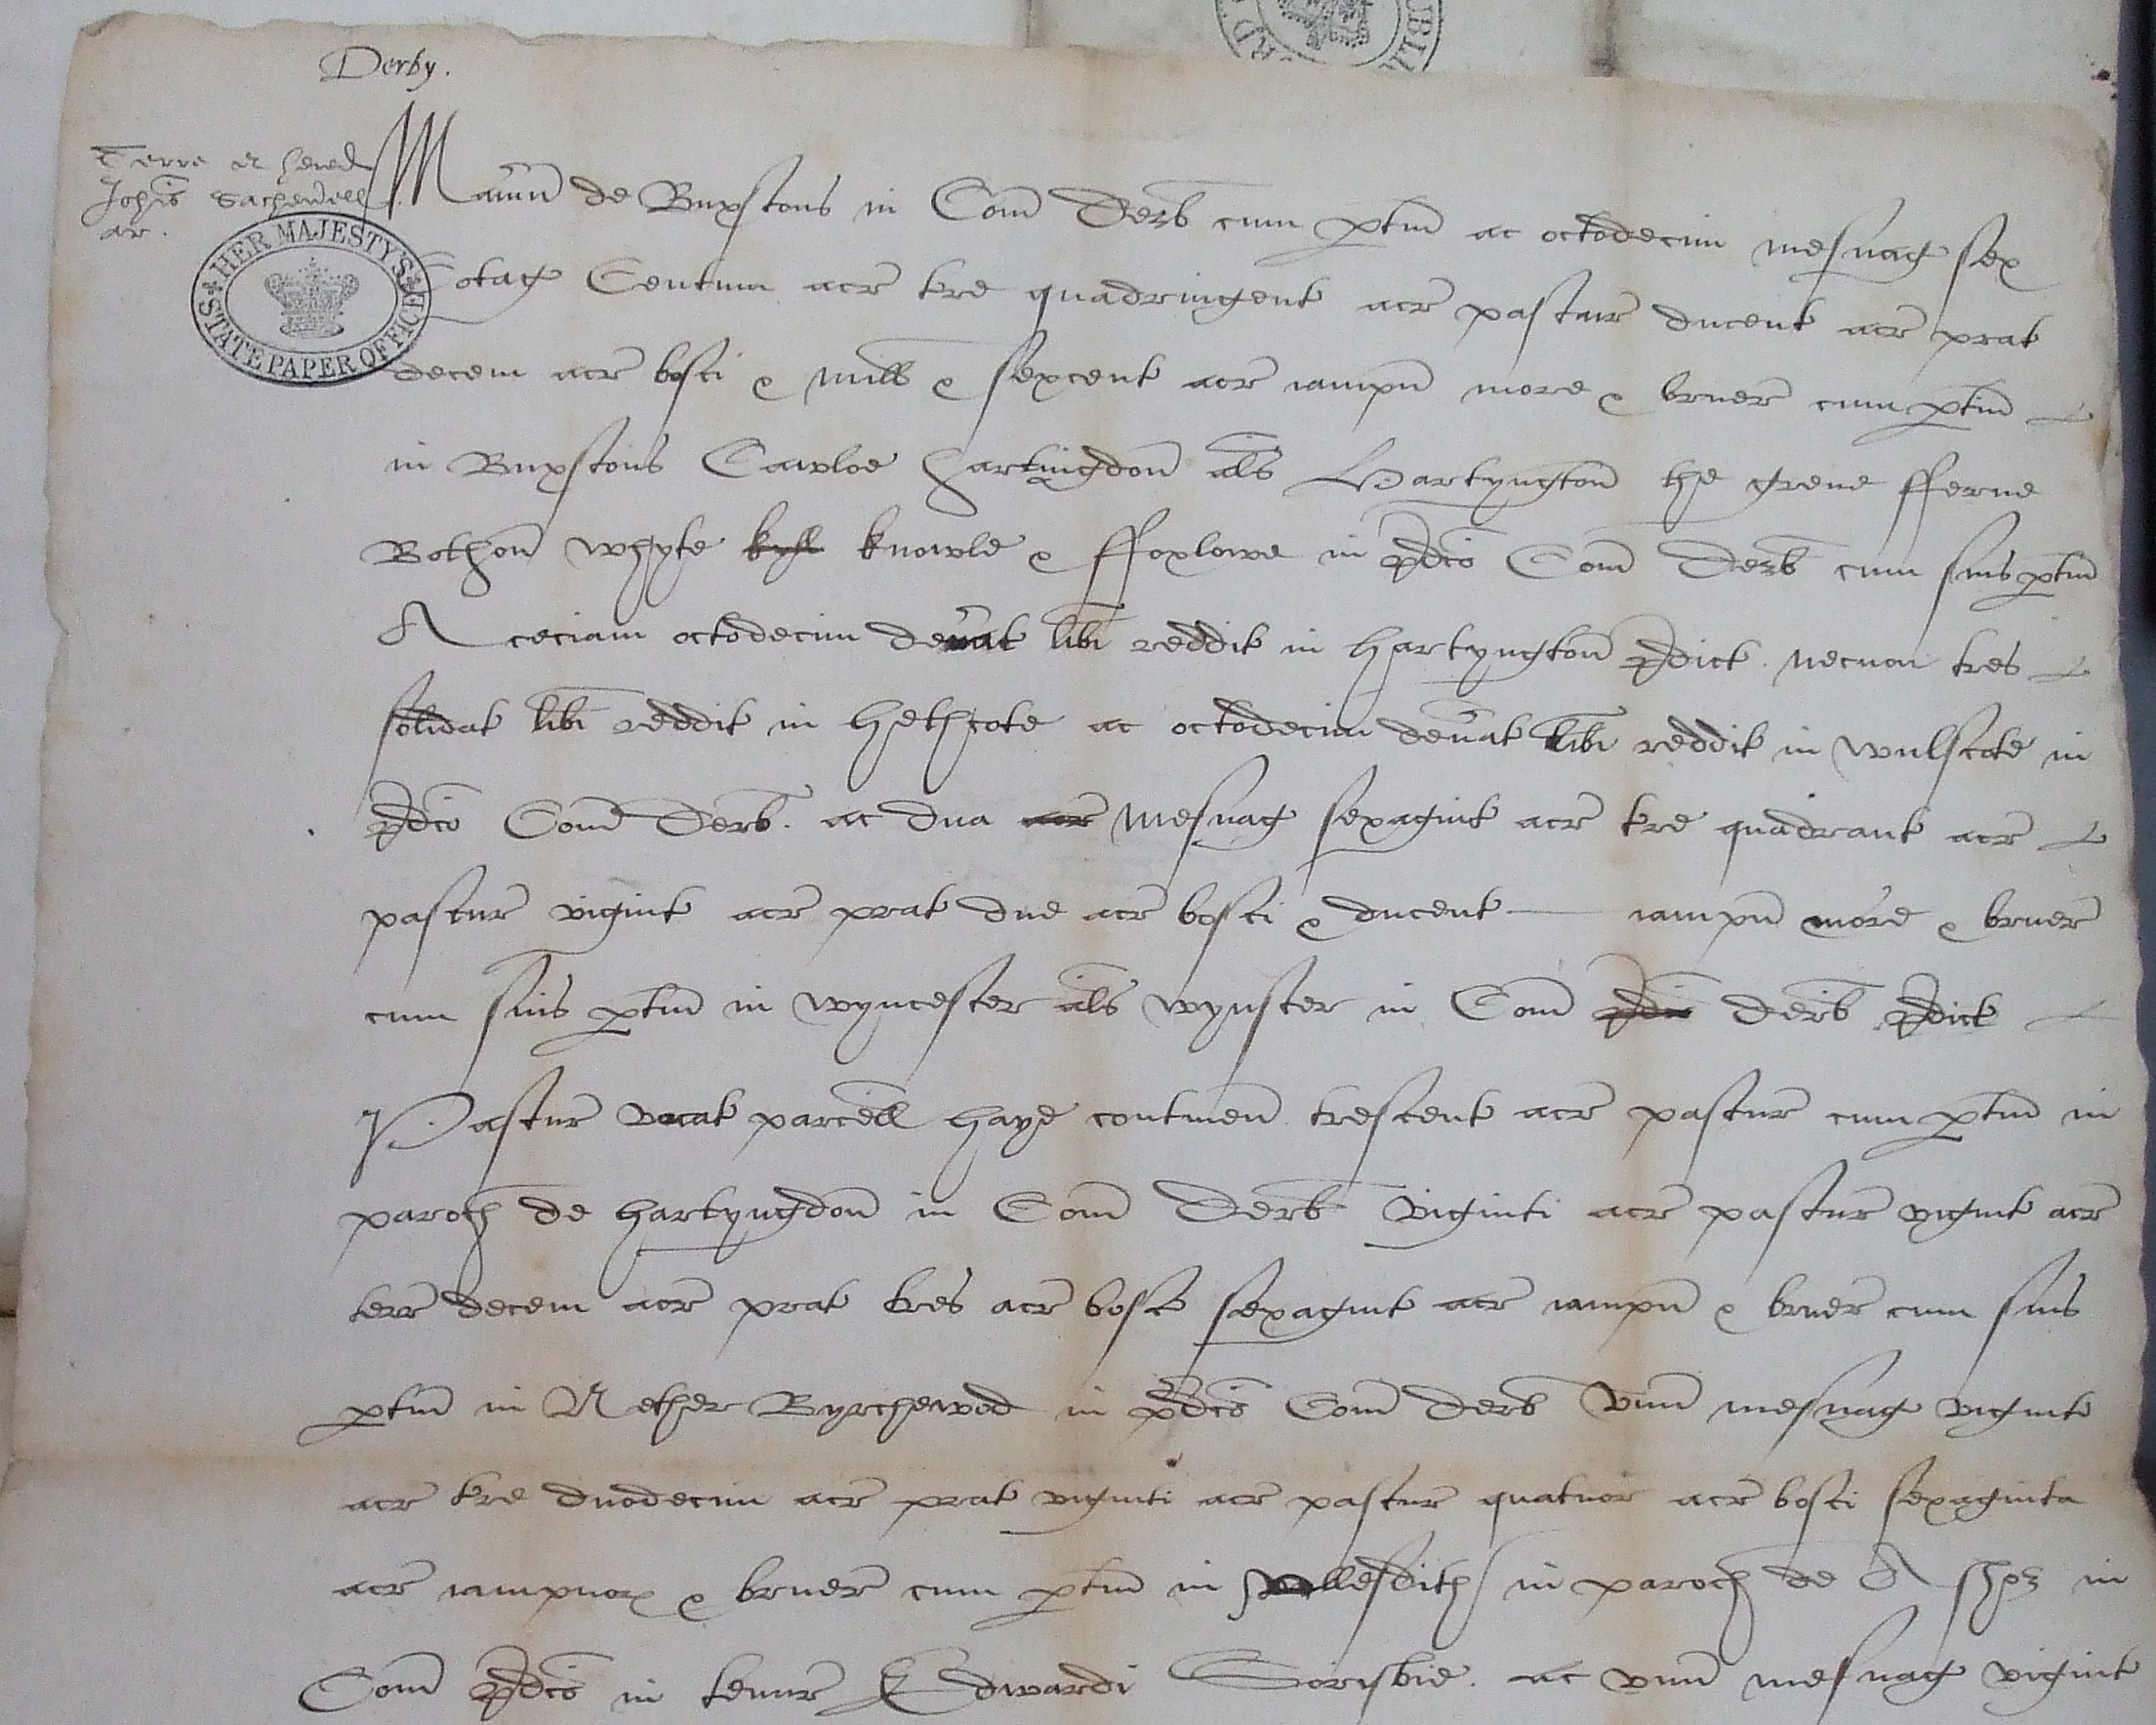 Derby.
Terre et hered
Johis Sachevell
ar.
HER MAJESTY'S
STATE PAPER OFFICE
Man̄ de Buxstons in Com̄ Derb̄ cum ptin̄ ac octodecim mesuag sex
Cotag Centum acr̄ tre quadringent acr̄ pastur̄ ducent acr̄ prat
decem acr̄ bosci & mill̄ & sexcent acr̄ iampn̄ more & bruer̄ cum ptin̄
in Buxstons Cawloe hartingdon̄ al̄s Hartyngton̄ the grene fferne
Bothon̄ whyte kyll knowle & ffoxlowe in p̄dcō Com̄ Derb̄ cum suis ptin̄
Aceciam octodecim denat lib̄i reddit in hartyngton̄ p̄dict. necnon tres
solidat lib̄i reddit in hethcote ac octodecim den̄at lib̄i reddit in wulscote in
p̄dcō Com̄ Derb̄. ac dua acr̄ mesuag sexagint acr̄ tre quadrant acr̄
pastur̄ vigint acr̄ prat due acr̄ bosci & ducent — iampn̄ more & bruer̄
cum suis ptin̄ in wyncester al̄s wynster in Com̄ p̄dcō Derb̄ p̄dict
Pastur̄ vocat parcell haye continen̄ trescent acr̄ pastur̄ cum ptin̄ in
paroch de hartyngdon̄ in Com̄ Derb̄ viginti acr̄ pastur̄ vigint acr̄
terr̄ decem acr̄ prat tres acr̄ bosc sexagint acr̄ iampn̄ & bruer̄ cum suis
ptin̄ in Nether Byrchewod in p̄dcō Com̄ Derb̄ vnn̄ mesuag viginti
acr̄ tre duodecim acr̄ prat viginti acr̄ pastur̄ quatuor acr̄ bosci sexaginta
acr̄ iampnor & bruer̄ cum ptin̄ in in paroch de in
Com̄ p̄dcō in tenur̄ Edwardi Sorisbie. ac vnn̄ mesuag vigint